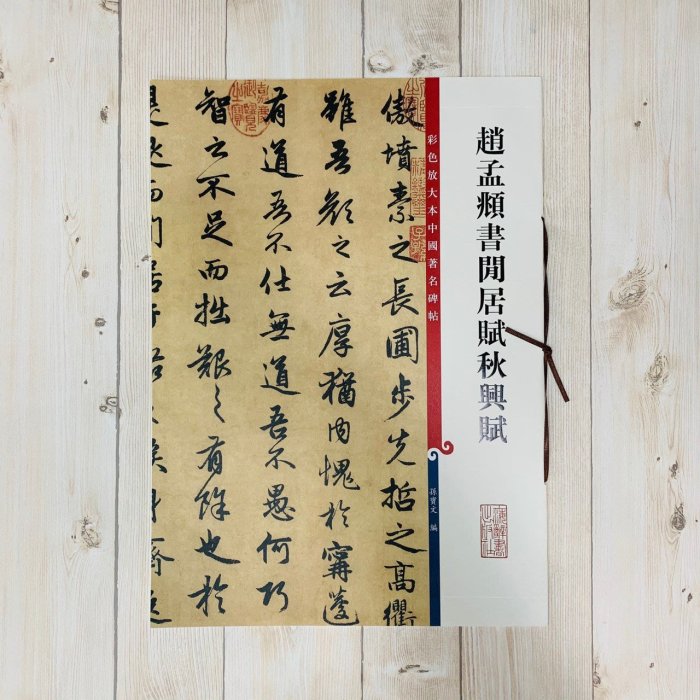 趙孟頫書閒居賦秋興賦
彩色放大本中國著名碑帖
孫寶文 編
傲墳素之長圃步先哲之高衢
雖吾顏之云厚猶內愧於甯蘧
有道吾不仕無道吾不愚何巧
智之不足而拙艱之有餘也於
是退而閒居于洛之涘身齊逸